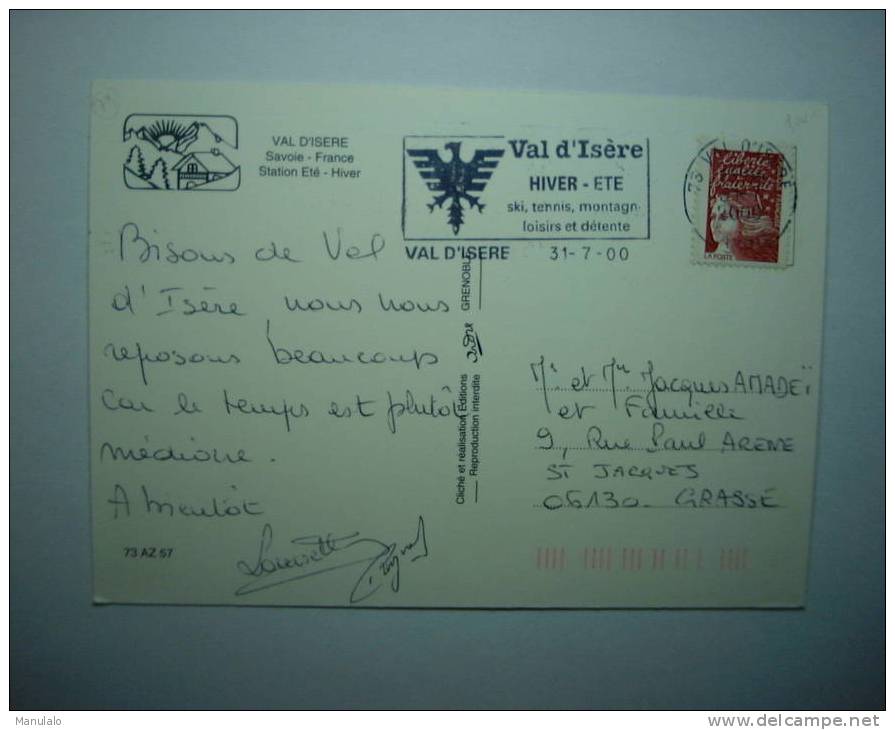 VAL D'ISERE
Savoie - France
Station Eté - Hiver
Val d'Isère
HIVER - ETE
ski, tennis, montagn
loisirs et détente
VAL D'ISERE 31-7-00
73 VAL D'ISERE
liberté
égalité
fraternité
LA POSTE
Bisous de Val
d'Isère nous nous
reposons beaucoup
car le temps est plutôt
médiocre.
A bientôt
Louisette
73 AZ 57
Cliché et réalisation Editions
Reproduction interdite
GRENOBLE
Mr et Mme Jacques AMADEÏ
et Famille
9, Rue Paul ARENE
ST JACQUES
06130 GRASSE
Manulalo
www.delcampe.net